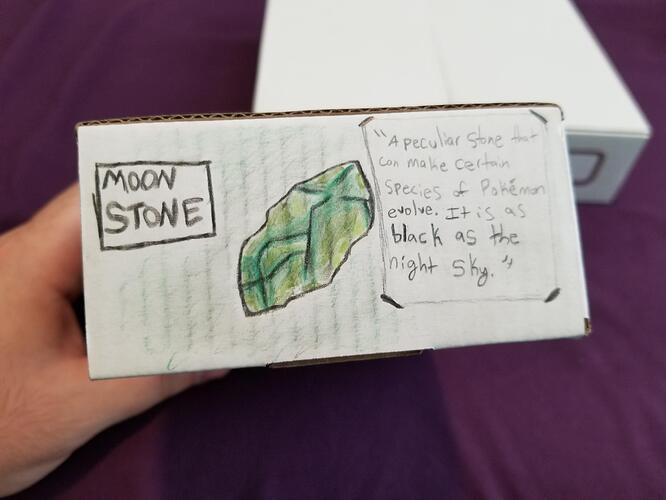 MOON
STONE
"A peculiar stone that
can make certain
species of Pokémon
evolve. It is as
black as the
night sky."